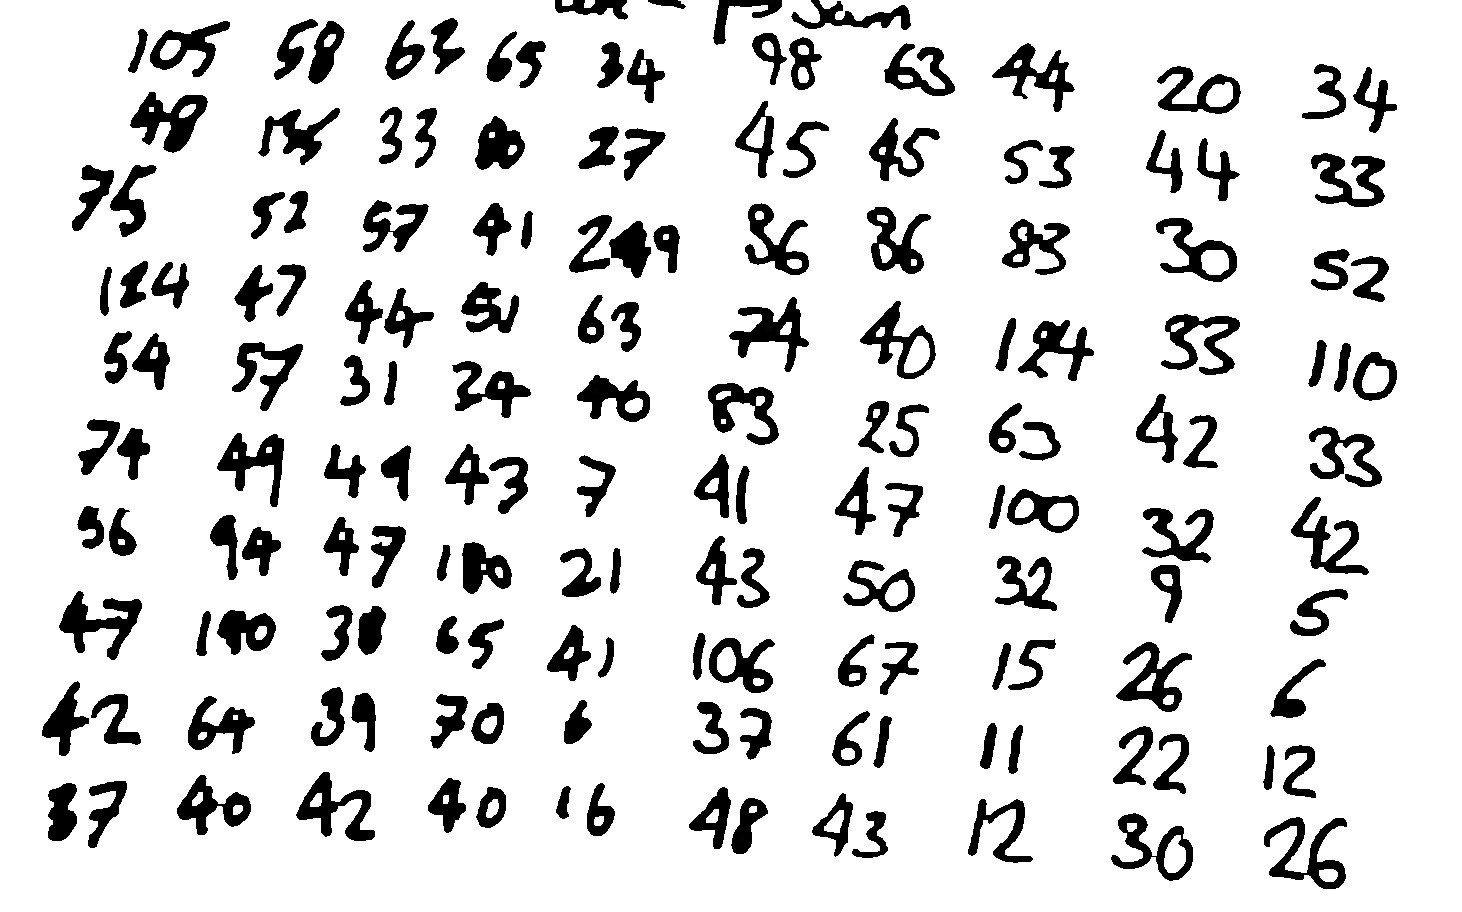 Sam
105 58 63 65 34 98 63 44 20 34
48 135 33 80 27 45 45 53 44 33
75 52 57 41 249 36 86 83 30 52
124 47 44 51 63 74 40 124 33 110
54 57 31 24 40 83 25 63 42 33
74 49 49 43 7 41 47 100 32 42
56 94 47 21 43 50 32 9 5
47 190 38 65 41 106 67 15 26 6
42 64 39 70 6 37 61 11 22 12
37 40 42 40 16 48 43 12 30 26